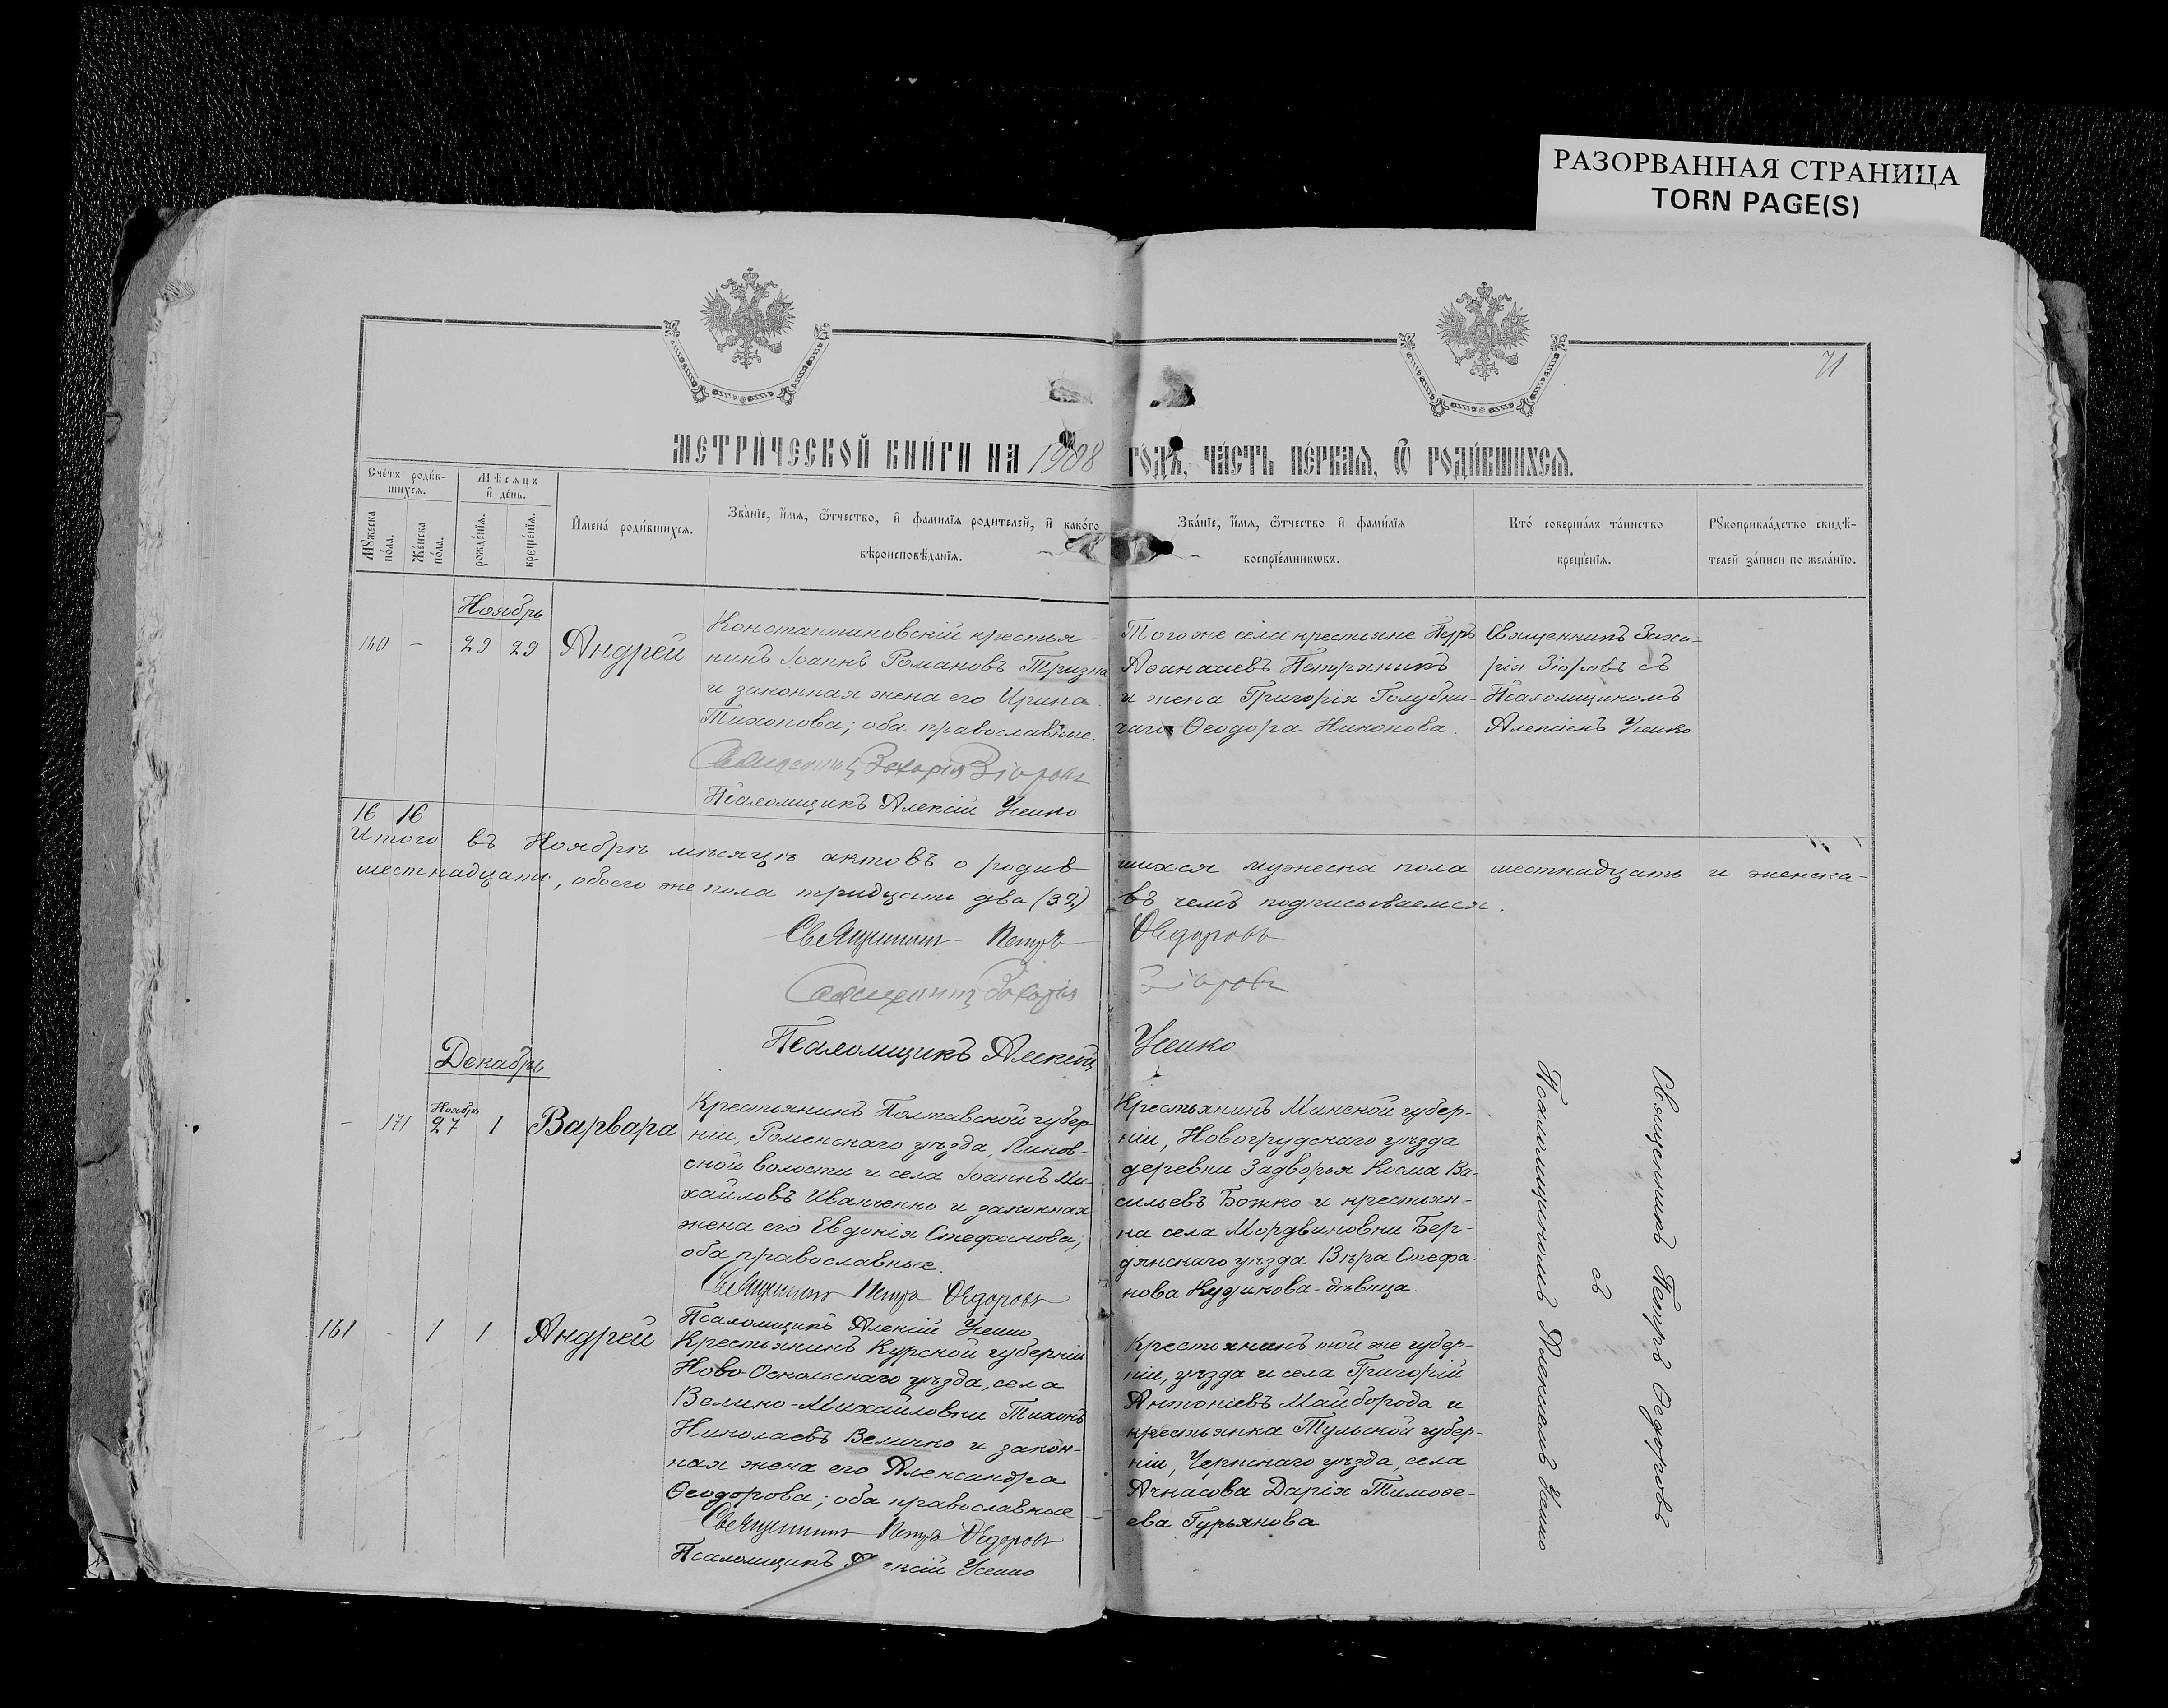 РАЗОРВАННАЯ СТРАНИЦА
TORN PAGE(S)
71
МЕТРИ́ЧЕСКОЙ КНИ́ГИ НА 1908 ГО́ДЪ, ЧА́СТЬ ПЕ́РВАЯ, Ѿ РОДИ́ВШИХСЯ.
Сче́тъ роди́вшихся.
Мѣсяцъ и де́нь.
Мꙋ́жеска по́ла.
Же́нска по́ла.
рожде́нїя.
креще́нїя.
Имена́ роди́вшихся.
Зва́нїе, и́мя, ѻ́тчество, и фами́лїя родителей, и како́го
вѣроисповѣ́данїя.
Зва́нїе, и́мя, ѻ́тчество и фами́лїя
воспрїе́мникѡвъ.
Кто́ соверша́лъ та́инство
креще́нїя.
Рꙋкоприкла́дство свидѣ́-
телей за́писи по жела́нїю.
Ноябрь
160 - 29 29 Андрей
Константиновскій крестья-
нинъ Іоаннъ Романовъ Тризна
и законная жена его Ирина
Тихонова; оба православные.
Священникъ Захарія Зіоровъ
Псаломщикъ Алексій Усенко
Того же села крестьяне Петръ
Аѳанасіевъ Петряникъ
и жена Григорія Голубни-
чаго Ѳеодора Никонова.
Священникъ Заха-
рія Зіоровъ съ
Псаломщикомъ
Алексіемъ Усенко
16 16
Итого въ Ноябрѣ мѣсяцѣ актовъ о родив- шихся мужеска пола шестнадцать и женска-
шестнадцать, обоего же пола тридцать два (32) въ чемъ подписываемся.
Священникъ Петръ Ѳедоровъ
Священникъ Захарія Зіоровъ
Псаломщикъ Алексій Усенко
Декабрь
- 171 Ноября 27 1 Варвара
Крестьянинъ Полтавской губер-
ніи, Роменскаго уѣзда, Линов-
ской волости и села Іоаннъ Ми-
хайловъ Иванченко и законная
жена его Евдокія Стефанова;
оба православные.
Священникъ Петръ Ѳедоровъ
Псаломщикъ Алексій Усенко
Крестьянинъ Минской губер-
ніи, Новогрудскаго уѣзда
деревни Задворья Косма Ва-
сильевъ Божко и крестьян-
ка села Мордвиновки Бер-
дянскаго уѣзда Вѣра Стефа-
нова Кудинова-дѣвица.
161 - 1 1 Андрей
Крестьянинъ Курской губерніи
Ново-Оскольскаго уѣзда, села
Велико-Михайловки Тихонъ
Николаевъ Величко и закон-
ная жена его Александра
Ѳеодорова; оба православные
Священникъ Петръ Ѳедоровъ
Псаломщикъ Алексій Усенко
Крестьянинъ той же губер-
ніи, уѣзда и села Григорій
Антоніевъ Майборода и
крестьянка Тульской губер-
ніи, Чернскаго уѣзда, села
Ачкасова Дарія Тимоѳе-
ева Гурьянова
Священникъ Петръ Ѳедоровъ
съ
Псаломщикомъ Алексіемъ Усенко